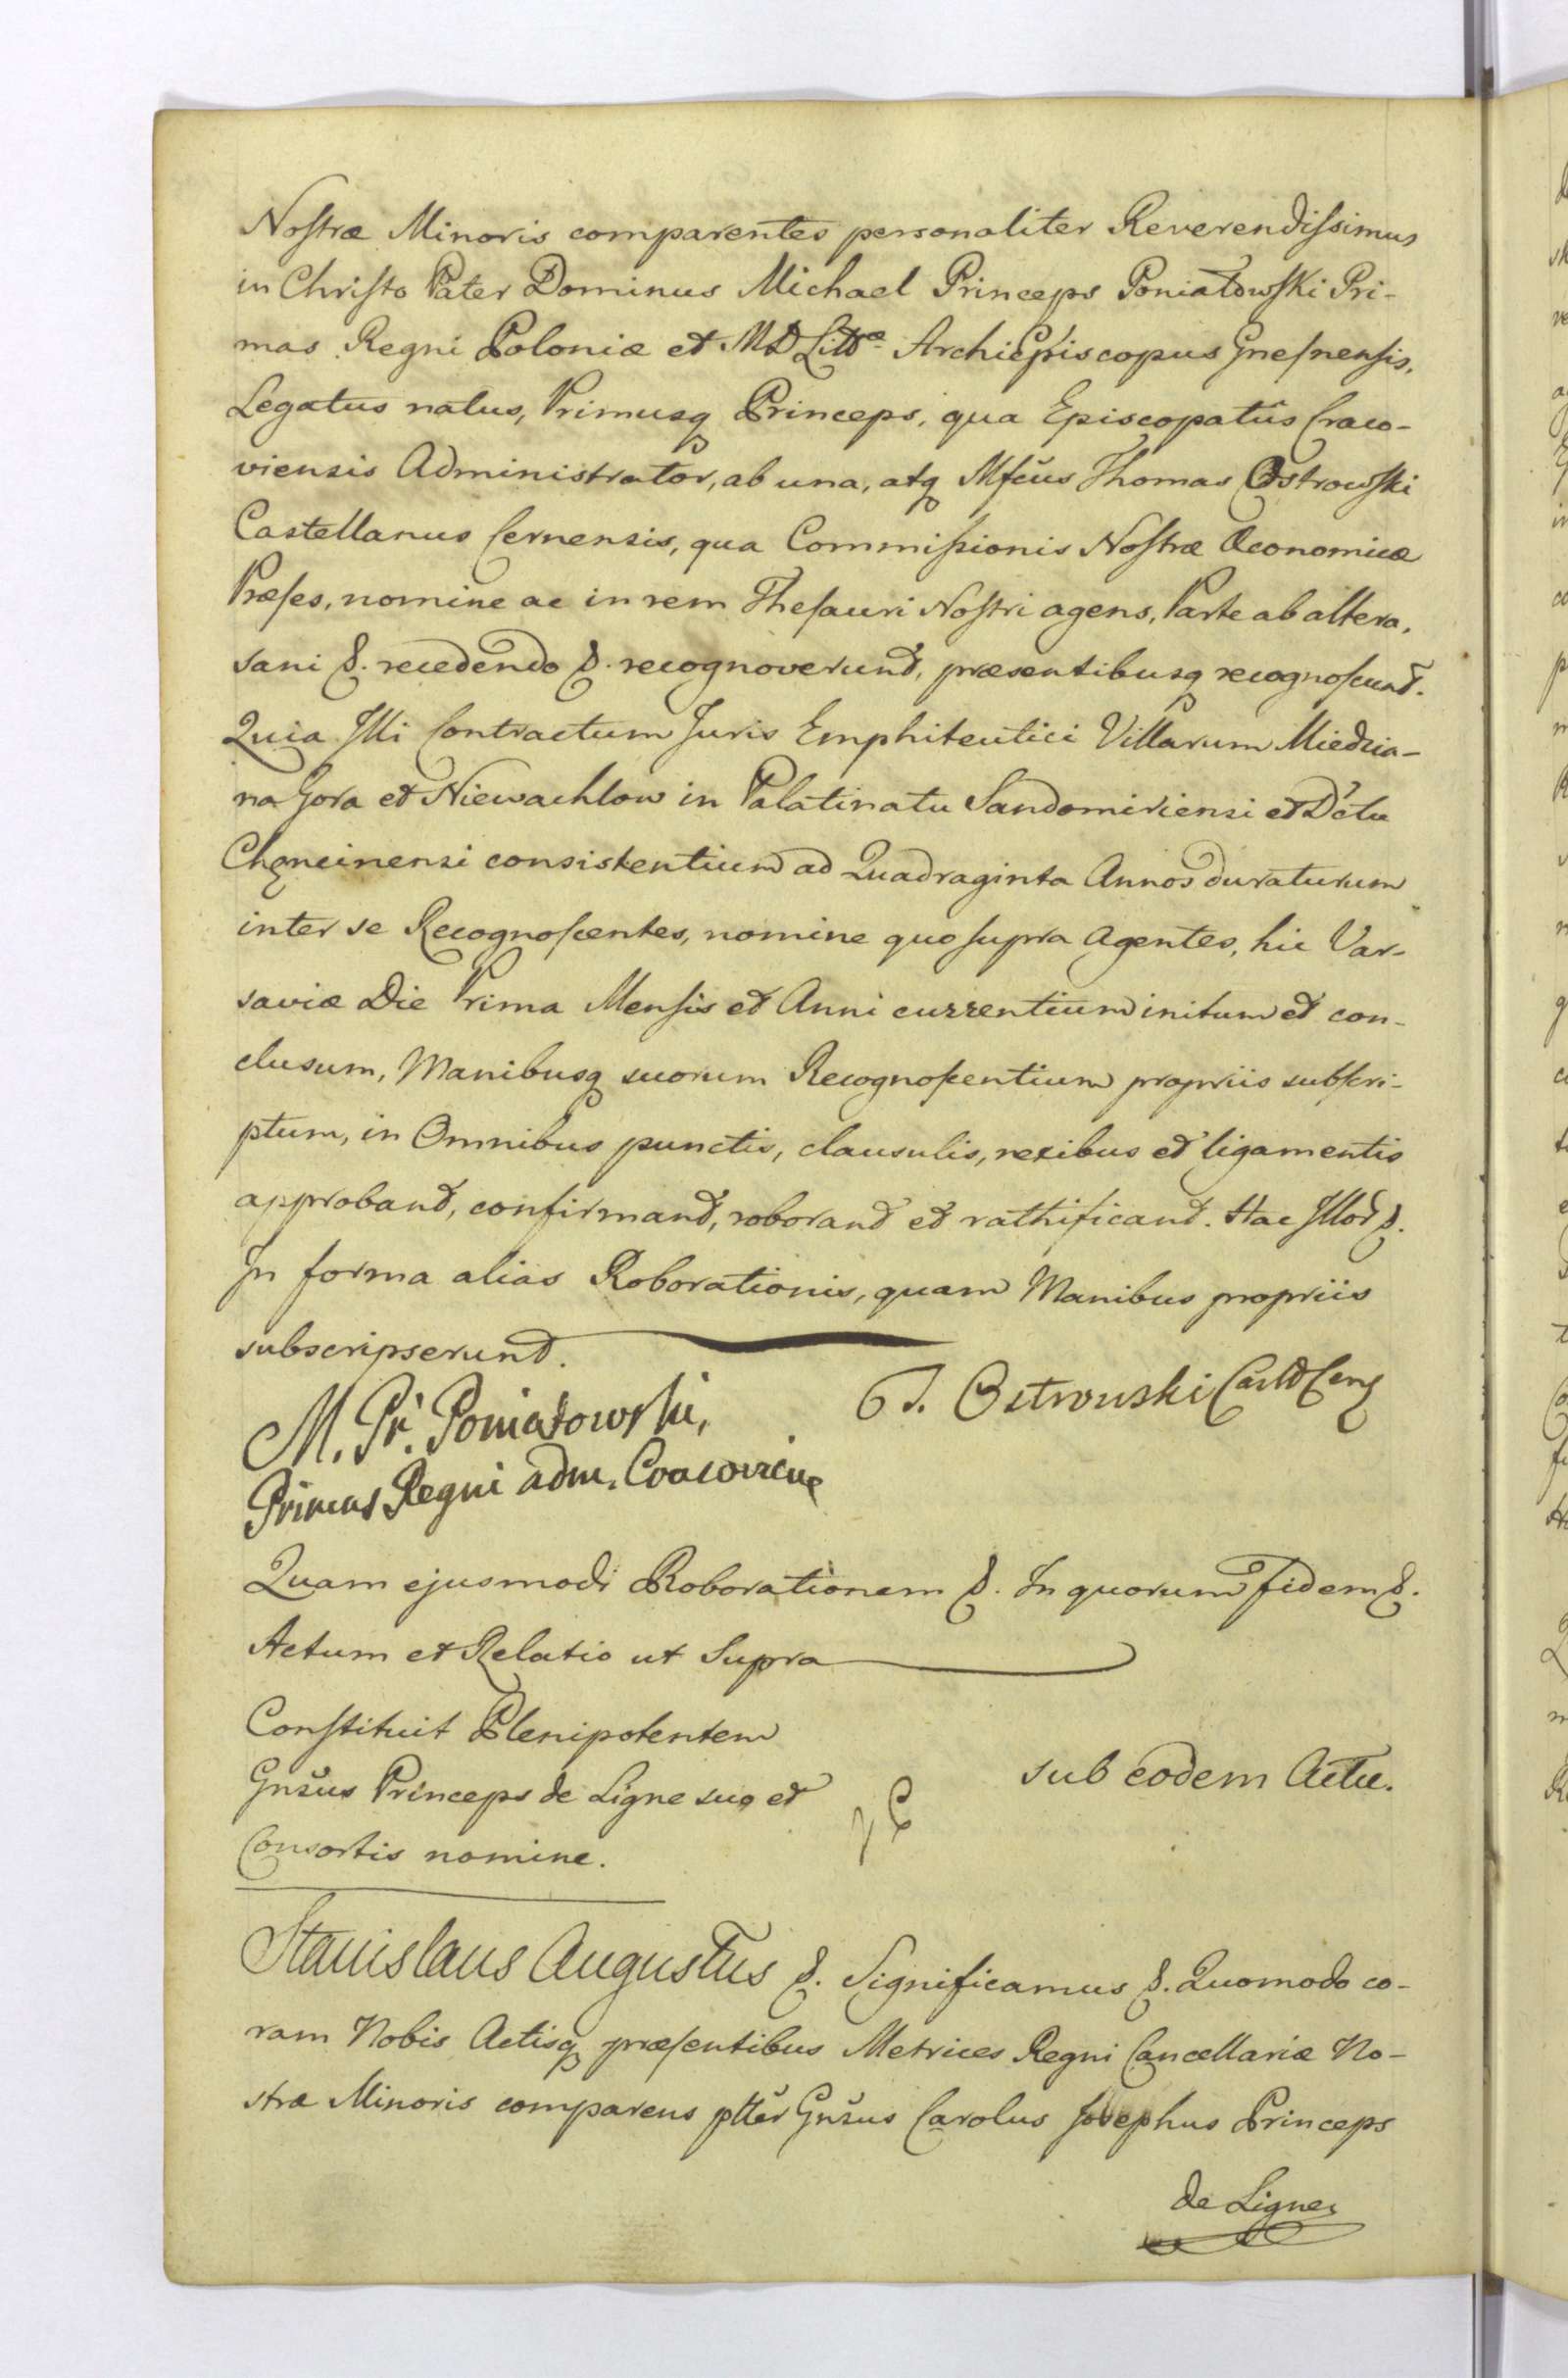 Nostræ Minoris comparentes personaliter Reverendissimus
in Christo Pater Dominus Michael Princeps Poniatowski Pri-
mas Regni Poloniæ et M D Littæ Archiepiscopus Gnesnensis,
Legatus natus, Primusq Princeps, qua Episcopatûs Craco-
viensis Administrator, ab una, atq Mfcus Thomas Ostrowski
Castellanus Cernensis, qua Commissionis Nostræ Œconomicæ
Præses, nomine ac in rem Thesauri Nostri agens, Parte ab altera,
sani &. recedendo &. recognoverunt, præsentibusq recognoscunt.
Quia Illi Contractum Juris Emphiteutici Villarum Miedzia-
na Gora et Niewachlow in Palatinatu Sandomiriensi et Dctu
Chęncinensi consistentium ad Quadraginta Annos duraturum
inter se Recognoscentes, nomine quo supra Agentes, hic Var-
saviæ Die Prima Mensis et Anni currentium initum et con-
clusum, Manibusq suorum Recognoscentium propriis subscri-
ptum, in Omnibus punctis, clausulis, nexibus et ligamentis
approband, confirmand, roborand et rathificand. Hac Illor &.
In forma alias Roborationis, quam Manibus propriis
subscripserunt.
M. Pr. Poniatowski,
T. Ostrowski Caslt Cerń
Primas Regni adm. Cracovien
Quam ejusmodi Roborationem &. In quorum fidem &.
Actum et Relatio ut Supra
Constituit Plenipotentem
Gnsus Princeps de Ligne suo et
Consortis nomine.
sub eodem Actu.
Stanislaus Augustus &. Significamus &. Quomodo co-
ram Nobis Actisq præsentibus Metrices Regni Cancellariæ No-
stræ Minoris comparens plter Gnsus Carolus Josephus Princeps
de Ligne